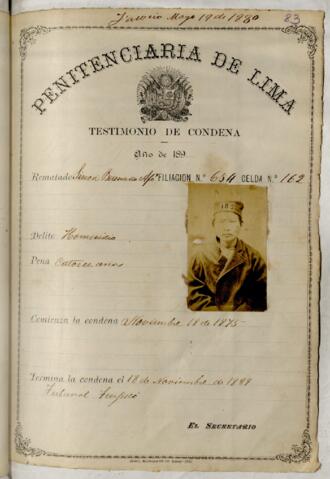 Mayo 19 de 1880
83
PENITENCIARIA DE LIMA
TESTIMONIO DE CONDENA
Año de 189
Rematado FILIACION N.° 654 CELDA N.° 162
Delito Homicidio
Pena Catorce años
Comienza la condena Noviembre 18 de 1875
Termina la condena el 18 de Noviembre de 1889
Tribunal
EL SECRETARIO